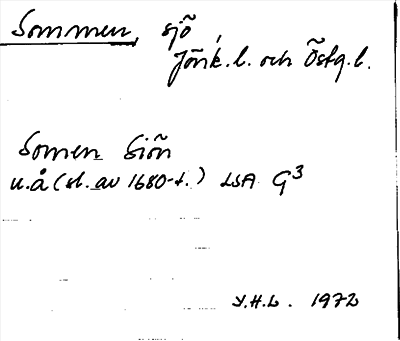 Sommen, sjö
Jönk.l. och Östg.l.
Somen Siön
u.å (sl. av 1680-t.) LSA G3
Y.H.L. 1972